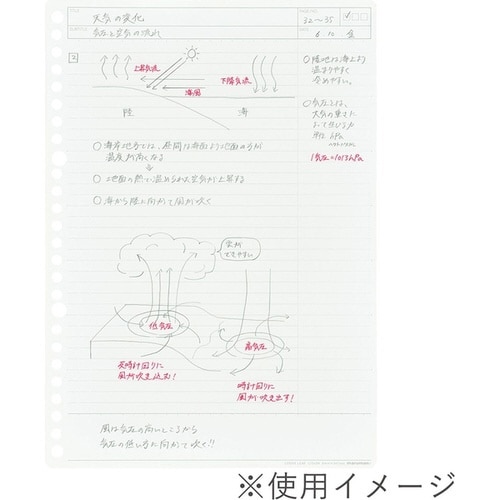 天気の変化
32〜35
気圧と空気の流れ
6 10 金
2
上昇気流
下降気流
海風
陸
海
○ 陸地は海上より
温まりやすく
冷めやすい。
○ 気圧とは、
大気の重さに
よって生じる力
単位 hPa
ヘクトパスカル
1気圧=1013hPa
○ 海岸地方では、昼間は海面より地面の方が
温度が高くなる
○ 地面の熱で温められた空気が上昇する
○ 海から陸に向かって風が吹く
雲が
できやすい
低気圧
高気圧
反時計回りに
風が吹き込む!
時計回りに
風が吹き出す!
風は気圧の高いところから
気圧の低い方に向かって吹く!!
※使用イメージ